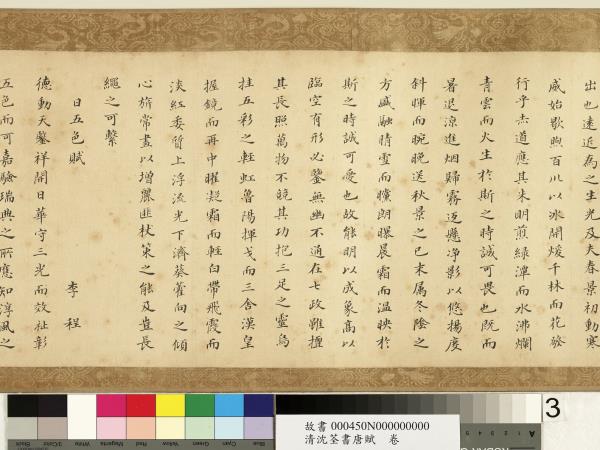 出也遠近為之生光及夫春景初動寒
威始歇煦百川以冰開煖千林而花發
行乎赤道應其朱明煎綠潭而水沸爛
青雲而火生於斯之時誠可畏也既而
暑退涼進烟歸霧迈懸淨影以悠揚度
斜暉而晼晚送秋景之已末屬冬陰之
方盛融晴雪而曭朗曝晨霜而溫映於
斯之時誠可愛也故能明以成象高以
臨空有形必鑒無幽不通在七政雖擅
其長照萬物不競其功抱三足之靈烏
挂五彩之輕虹魯陽揮戈而三舍漢皇
握鏡而再中曜凝霜而輕白帶飛霞而
淡紅委質上浮流光下濟葵藿向之傾
心旂常畫以增麗匪杖策之能及豈長
繩之可繫
日五色賦 李程
德動天鑒祥開日華守三光而效祉彰
五色而可嘉驗瑞典之所應知淳風之
故書 000450N000000000
清沈荃書唐賦 卷
3
Black
3/Color
White
Magenta
Red
Yellow
Green
Cyan
Blue
A 1 2 3 4 5